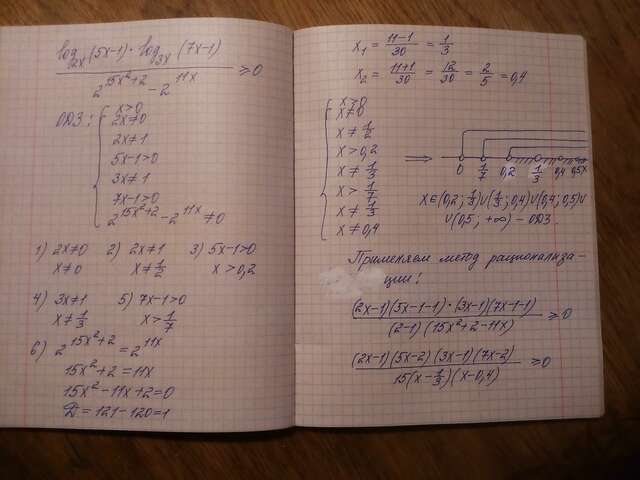 log₂ₓ(5x-1)·log₃ₓ(7x-1)
2^(15x²+2) - 2^(11x) ≥0
ОДЗ:
x>0
2x≠0
2x≠1
5x-1>0
3x≠1
7x-1>0
2^(15x²+2) - 2^(11x) ≠0
1) 2x≠0 2) 2x≠1 3) 5x-1>0
x≠0 x≠1/2 x>0,2
4) 3x≠1 5) 7x-1>0
x≠1/3 x>1/7
6) 2^(15x²+2) = 2^(11x)
15x²+2=11x
15x²-11x+2=0
D=121-120=1
x₁ = (11-1)/30 = 1/3
x₂ = (11+1)/30 = 12/30 = 2/5 = 0,4
x>0
x≠0
x≠1/2
x>0,2
x≠1/3
x>1/7
x≠1/3
x≠0,4
⟹
0 1/7 0,2 1/3 0,4 0,5 x
x∈(0,2; 1/3)∪(1/3; 0,4)∪(0,4; 0,5)∪
∪(0,5; +∞) - ОДЗ
Применяем метод рационализа-
ции:
(2x-1)(5x-1-1)·(3x-1)(7x-1-1)
(2-1)(15x²+2-11x) ≥0
(2x-1)(5x-2)(3x-1)(7x-2)
15(x-1/3)(x-0,4) ≥0